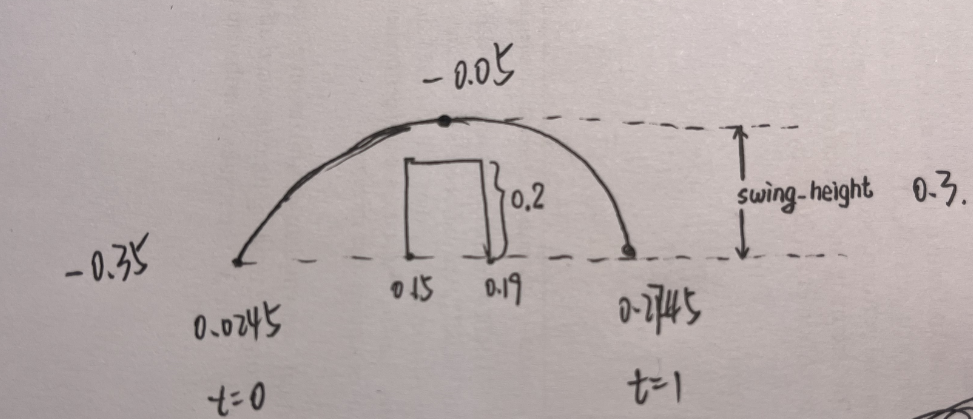 - 0.05
0.2
swing-height 0.3.
- 0.35
0.15 0.19
0.0245 0.2745
t=0 t=1